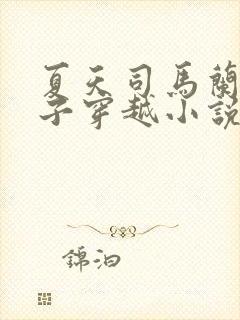 夏天司馬蘭
子穿越小說
錦泊